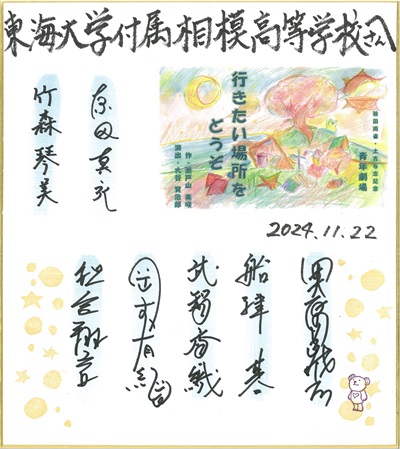 東海大学付属相模高等学校さんへ
秋田雨雀・土方与志記念
青年劇場
行きたい場所を
どうぞ
作・瀬戸山美咲
演出・大谷賢治郎
竹森琴美
2024.11.22
船津基
武智香織